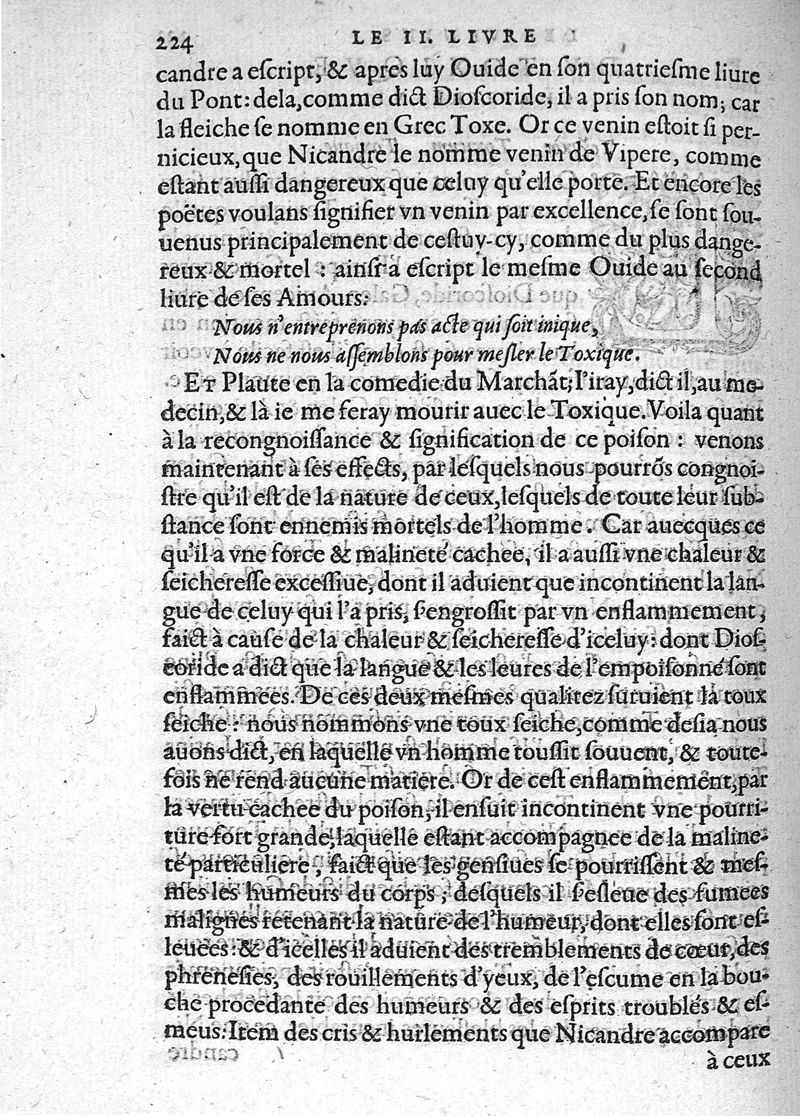 224
LE II. LIVRE
candre a eſcript, & apres luy Ouide en ſon quatrieſme liure
du Pont: dela, comme dict Dioſcoride, il a pris ſon nom; car
la fleiche ſe nomme en Grec Toxe. Or ce venin eſtoit ſi per-
nicieux, que Nicandre le nomme venin de Vipere, comme
eſtant auſſi dangereux que celuy qu'elle porte. Et encore les
poëtes voulans ſignifier vn venin par excellence, ſe ſont ſou-
uenus principalement de ceſtuy-cy, comme du plus dange-
reux & mortel : ainſi a eſcript le meſme Ouide au ſecond
liure de ſes Amours:
Nous n'entreprenons pas acte qui ſoit inique,
Nous ne nous aſſemblons pour meſler le Toxique.
ET Plaute en la comedie du Marchāt; I'iray, dict il, au me-
decin, & là ie me feray mourir auec le Toxique. Voila quant
à la recongnoiſſance & ſignification de ce poiſon : venons
maintenant à ſes effects, par leſquels nous pourrōs congnoi-
ſtre qu'il eſt de la nature de ceux, leſquels de toute leur ſub-
ſtance ſont ennemis mortels de l'homme. Car auecques ce
qu'il a vne force & malineté cachee, il a auſſi vne chaleur &
ſeichereſſe exceſſiue, dont il aduient que incontinent la lan-
gue de celuy qui l'a pris, ſ'engroſſit par vn enflammement,
faict à cauſe de la chaleur & ſeichereſſe d'iceluy: dont Dioſ-
coride a dict que la langue & les leures de l'empoiſonné ſont
enflammees. De ces deux meſmes qualitez ſuruient la toux
ſeiche : nous nommons vne toux ſeiche, comme deſia nous
auons dict, en laquelle vn homme touſſit ſouuent, & toute-
fois ne rend aucune matiere. Or de ceſt enflammement, par
la vertu cachee du poiſon, il enſuit incontinent vne pourri-
ture fort grande, laquelle eſtant accompagnee de la maline-
té particuliere, faict que les genſiues ſe pourriſſent & meſ-
mes les humeurs du corps; deſquels il ſ'eſleue des fumees
malignes retenant la nature de l'humeur, dont elles ſont eſ-
leuees: & d'icelles il aduient des tremblements de cœur, des
phreneſies, des rouillements d'yeux, de l'eſcume en la bou-
che procedante des humeurs & des eſprits troublés & eſ-
meus: Item des cris & hurlements que Nicandre accompare
à ceux